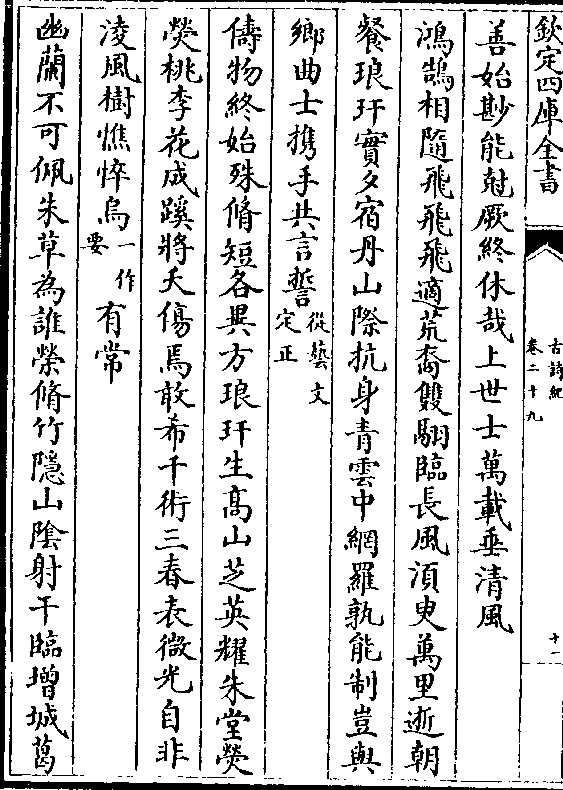 欽定四庫全書
古詩紀
卷二十九
十一
善始尠能尅厥終休哉上世士萬載垂清風
鴻鵠相隨飛飛飛適荒裔雙翮臨長風湏臾萬里逝朝
餐琅玕實夕宿丹山際抗身青雲中網羅孰能制豈與
鄉曲士携手共言誓從藝文定正
儔物終始殊脩短各異方琅玕生髙山芝英耀朱堂熒
熒桃李花成蹊將夭傷焉敢希千術三春表微光自非
凌風樹憔悴烏一作要有常
幽蘭不可佩朱草為誰榮脩竹隱山隂射干臨增城葛